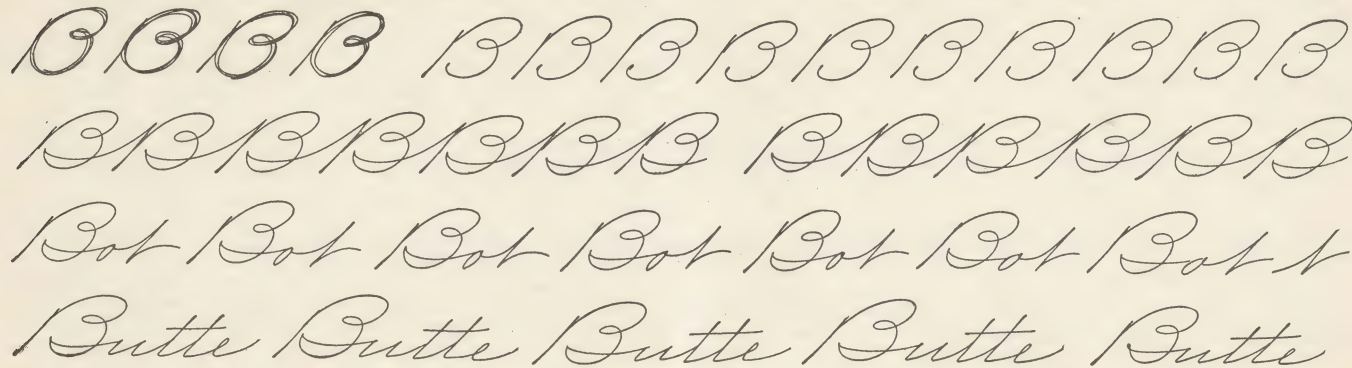 B B B B B B B B B B B B B B
B B B B B B B B B B B B B
Bot Bot Bot Bot Bot Bot Bot t
Butte Butte Butte Butte Butte